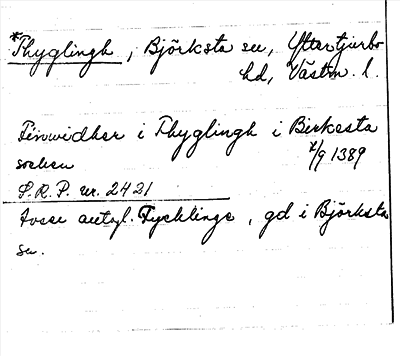 *Thyglingh, Björksta sn, Yttertjurbo
hd, Västm. l.
Finwidher i Thyglingh i Birkesta
sochen 7/9 1389
S.R.P. nr. 2421
Avse antgl. Tycklinge, gd i Björksta
sn.